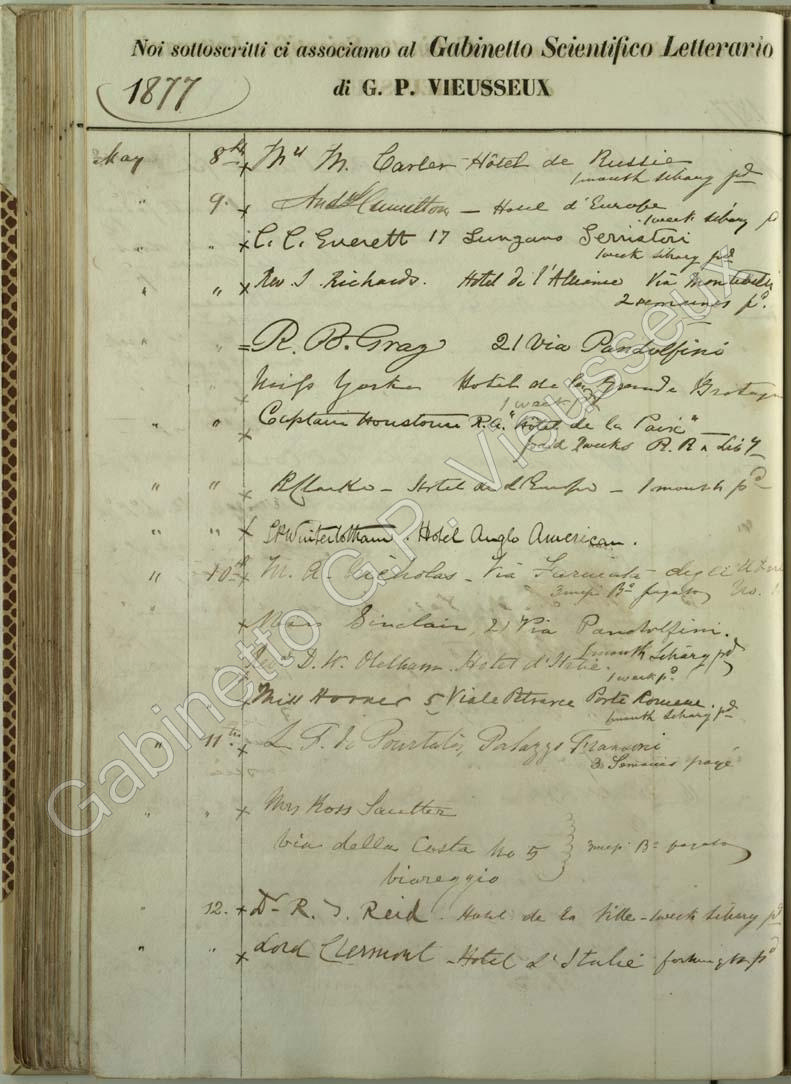 Noi sottoscritti ci associamo al Gabinetto Scientifico Letterario
1877 di G. P. VIEUSSEUX
May 8th x M. Carter Hôtel de Russie
1 month library pd
9. x Hamilton – Hotel d'Europe
1 week library p
" " x C. C. Everett 17 Lungarno Serristori
1 week library pd
" " x Rev. J. Richards. Hotel de l'Alliance Via
2 semaines pd.
" = R. B. Gray 21 Via Pandolfini
Miss Yorke Hotel de la Grande
1 week pd
" " x Captain Houstoun R.A. "Hôtel de la Paix"
paid 2 weeks R. R
" " x R Clarke – Hotel de l'Europe – 1 month pd
" " x Winterbotham. Hotel Anglo American.
" 10th x M. Nicholas – Via Farinata degli
3 mesi Bo pagato No.
x Miss Sinclair, 21 Via Pandolfini.
1 month library pd
x Revd D. W. Oldham. Hotel d'Italie.
1 week pd
" x Miss Horner 5 Viale Petrarca Porta Romana.
1 month library pd
" 11th x de Pourtalès, Palazzo
3 Semaines payé
" " x Mrs Ross Sautter
Via della Costa No 5 3 mesi Bo pagato
Viareggio
" 12. x Dr R. J. Reid. Hotel de la Ville – week library pd
" " x Lord Clermont – Hotel d'Italie fortnight pd
Gabinetto G.P. Vieusseux